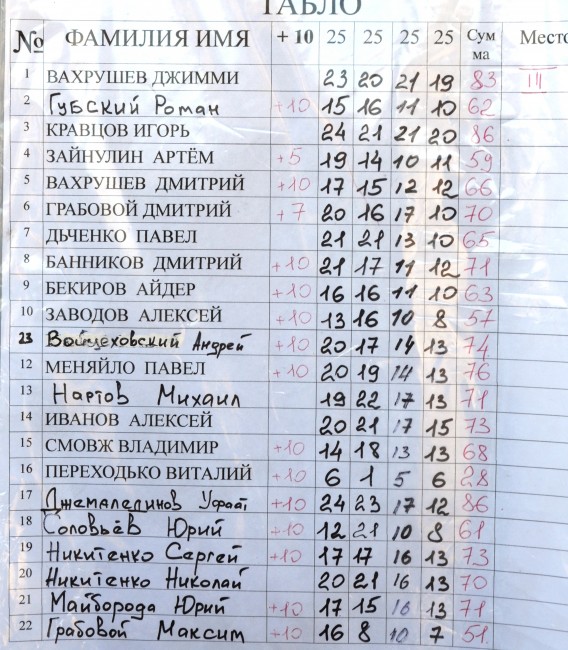 ТАБЛО
№ ФАМИЛИЯ ИМЯ + 10 25 25 25 25 Сумма Место
1 ВАХРУШЕВ ДЖИММИ 23 20 21 19 83 III
2 Губский Роман +10 15 16 11 10 62
3 КРАВЦОВ ИГОРЬ 24 21 21 20 86
4 ЗАЙНУЛИН АРТЁМ +5 19 14 10 11 59
5 ВАХРУШЕВ ДМИТРИЙ +10 17 15 12 12 66
6 ГРАБОВОЙ ДМИТРИЙ +7 20 16 17 10 70
7 ДЬЧЕНКО ПАВЕЛ 21 21 13 10 65
8 БАННИКОВ ДМИТРИЙ +10 21 17 11 12 71
9 БЕКИРОВ АЙДЕР +10 16 16 11 10 63
10 ЗАВОДОВ АЛЕКСЕЙ +10 13 16 10 8 57
23 Войцеховский Андрей +10 20 17 14 13 74
12 МЕНЯЙЛО ПАВЕЛ +10 20 19 14 13 76
13 Нартов Михаил 19 22 17 13 71
14 ИВАНОВ АЛЕКСЕЙ 20 21 17 15 73
15 СМОВЖ ВЛАДИМИР +10 14 18 13 13 68
16 ПЕРЕХОДЬКО ВИТАЛИЙ +10 6 1 5 6 28
17 Джемалединов Усфаат +10 24 23 17 12 86
18 Соловьёв Юрий +10 12 21 10 8 61
19 Никитенко Сергей +10 17 17 16 13 73
20 Никитенко Николай 20 21 16 13 70
21 Майборода Юрий +10 17 15 16 13 71
22 Грабовой Максим +10 16 8 10 7 51